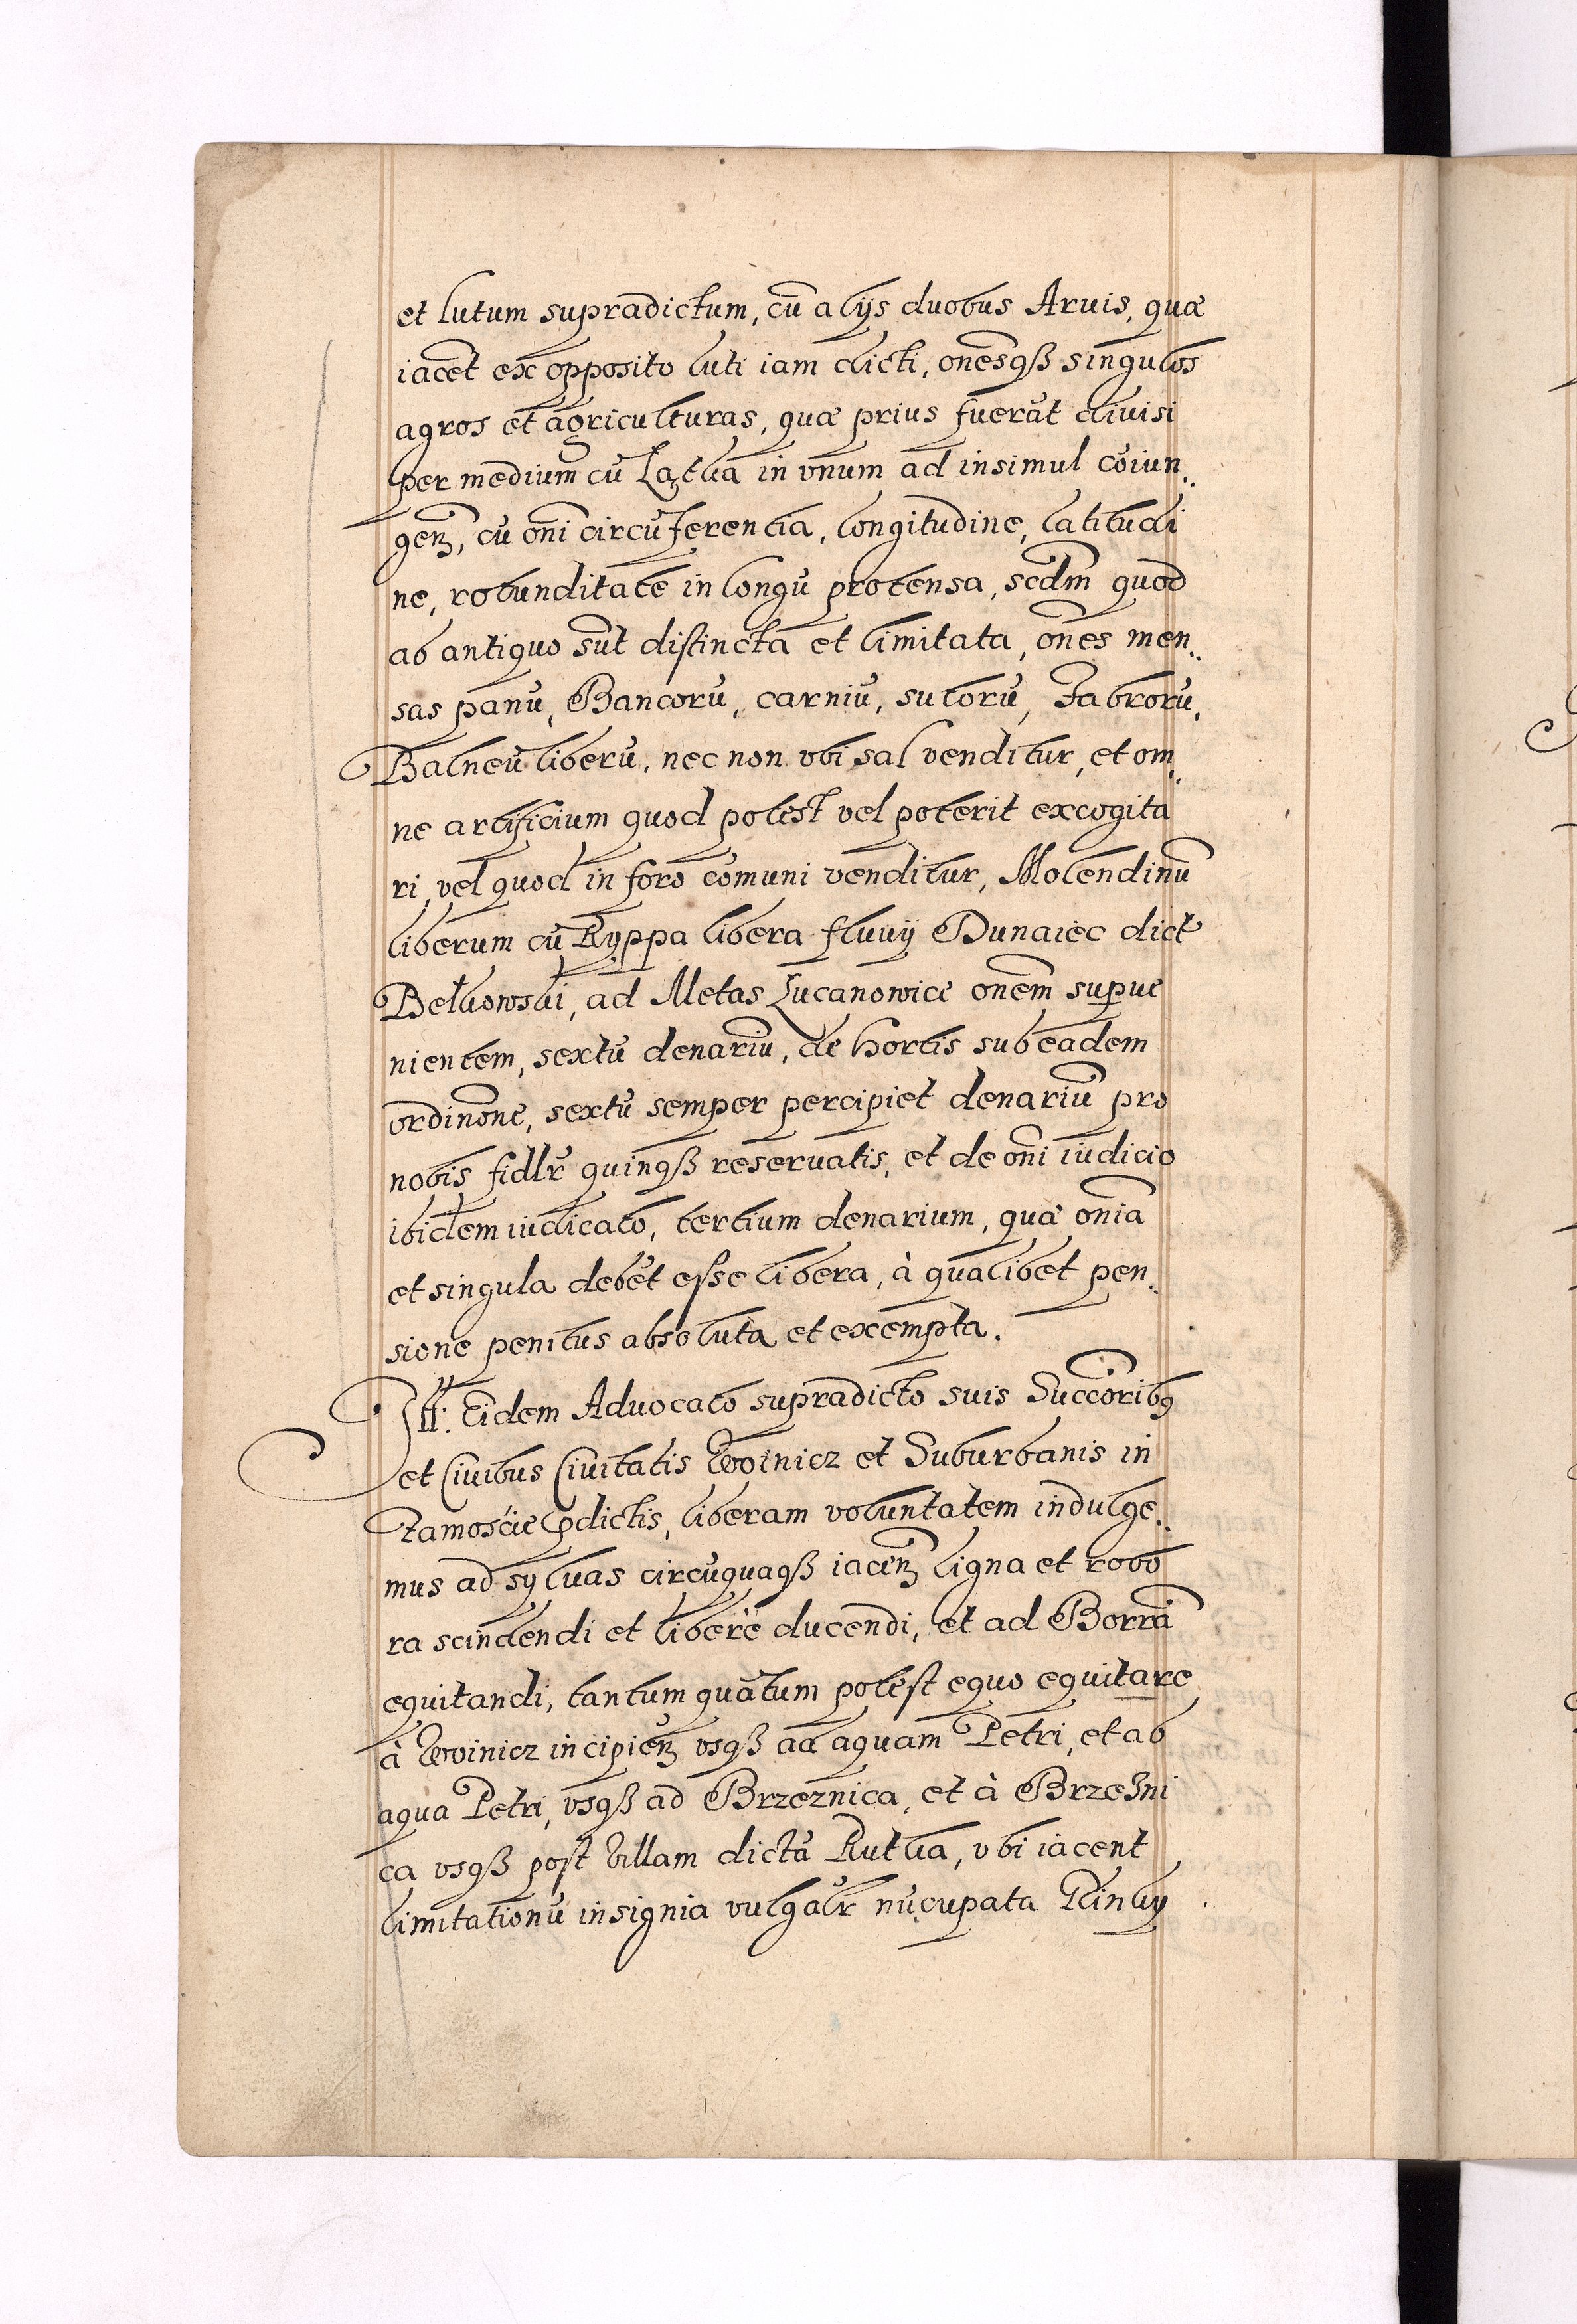 et lutum supradictum, cū alijs duobus Aruis, quæ
iacēt ex opposito luti iam dicti, oñesqꝫ singulos
agros et agriculturas, quæ prius fuerāt diuisi
per medium cū Łątka in vnum ad insimul cōiun„
geñ, cū oñi circūferentia, longitudine, latitudi
ne, rotunditate in longū protensa, scdm̄ quod
ab antiquo sūt distincta et limitata, oñes men„
sas panū, Bancorū, carniū, sutorū, Fabrorū,
Balneū liberū, nec non vbi sal venditur, et om„
ne artificium quod potest vel poterit excogita
ri, vel quod in foro cōmuni venditur, Molendinū
liberum cū Ryppa libera fluuij Dunaiec dict
Bełkowski, ad Metas Łucanowice oñem supue
nientem, sextū denariū, de hortis sub eadem
ordinōne, sextū semper percipiet denariū pro
nobis fidlr quinqꝫ reseruatis, et de oñi iudicio
ibidem iudicato, tertium denarium, quæ oñia
et singula debēt esse libera, à qualibet pen„
sione penitus absoluta et exempta.
Itt: Eidem Aduocato supradicto suis Successoribꝰ
et Ciuibus Ciuitatis Woinicz et Suburbanis in
Zamoście p̄dictis, liberam voluntatem indulge„
mus ad syluas circūquaqꝫ iaceñ ligna et robo
ra scindendi et liberè ducendi, et ad Borrā
equitandi, tantum quātum potest equo equitare
à Woinicz incipieñ vsqꝫ ad aquam Petri, et ab
aqua Petri, vsqꝫ ad Brzeznica, et à Brzezni
ca vsqꝫ post Villam dictā Rutka, vbi iacent
limitationū insignia vulgālr nūcupata Rinky